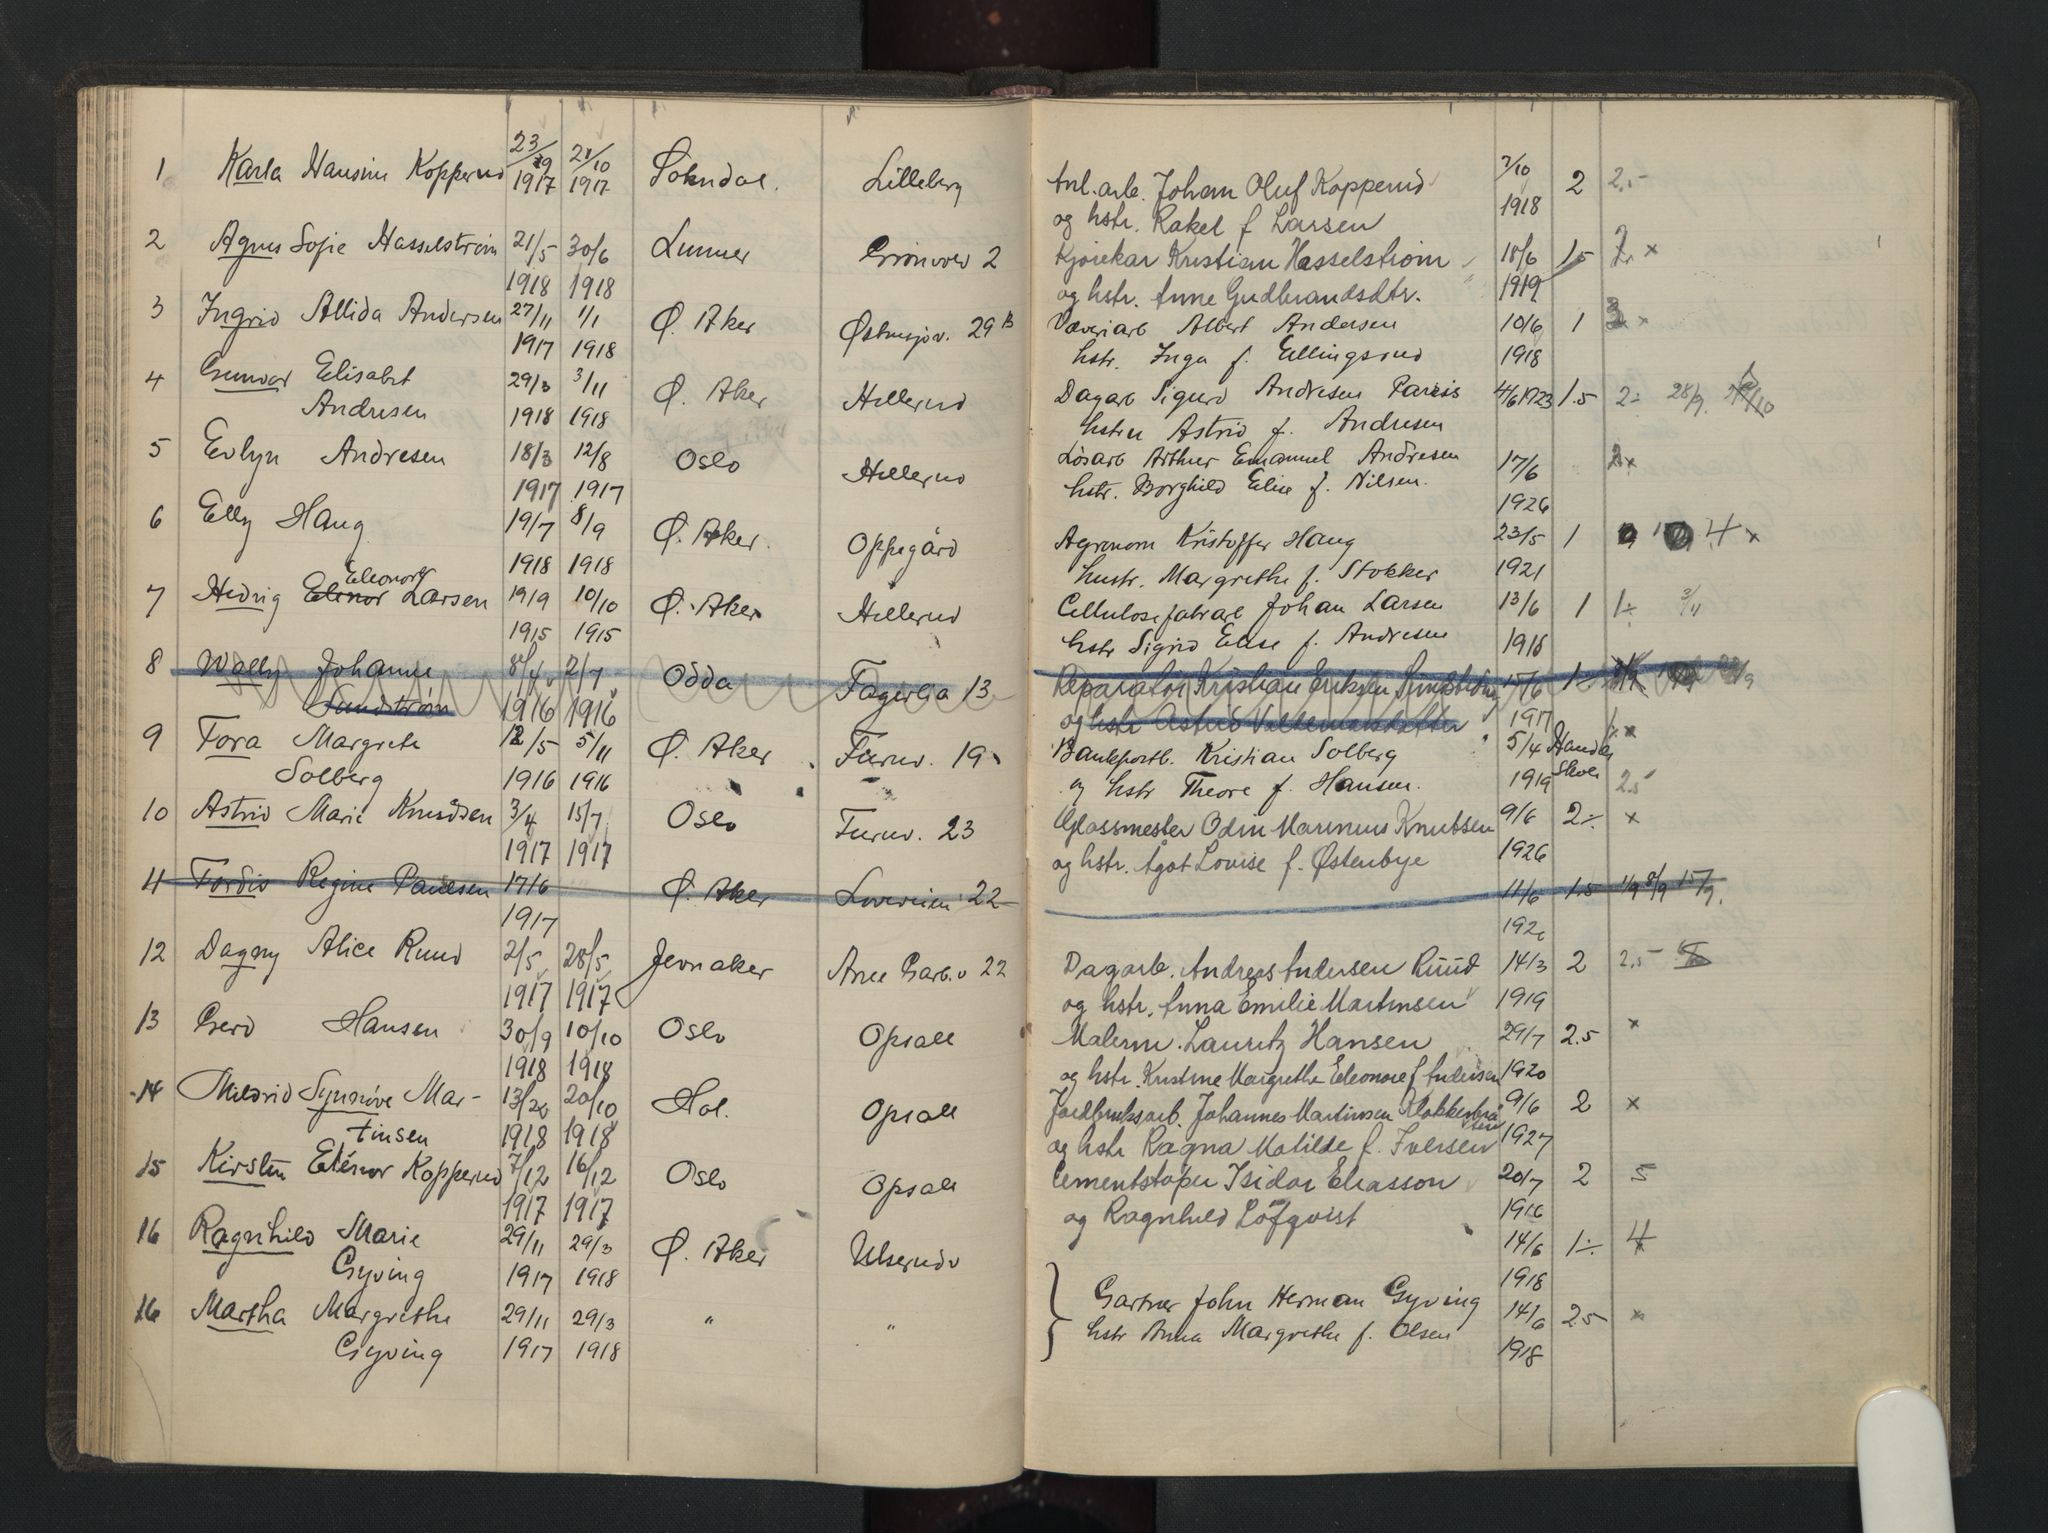 1 Karla Hansine Kopperud 23/9 1917 21/10 1917 Sokndal. Lilleberg Anl.arb. Johan Oluf Kopperud 7/10 1918 2 2.5
og hstr. Rakel f Larsen
2 Agnes Sofie Hasselstrøm 21/5 1918 30/6 1918 Lunner Grønvold 2 Kjørekar Kristian Hasselstrøm 18/6 1919 1.5 x
og hstr. Anne Gudbrandsdtr.
3 Ingrid Allida Andersen 27/11 1917 1/1 1918 Ø. Aker Østensjøv. 29 B Væveriarb Albert Andersen 10/6 1918 1 x
hstr. Inga f. Ellingsrud
4 Gunvor Elisabet 29/3 1918 3/11 1918 Ø. Aker Hellerud Dagarb Sigurd Andresen 4/6 1923 1.5 2÷ 28/9.
Andresen hstru Astrid f. Andresen
5 Evlyn Andresen 18/3 1917 12/8 1917 Oslo Hellerud Løsarb Arthur Emanuel Andresen 17/6 1926 x
hstr. Borghild Elise f. Nilsen.
6 Elly Haug 19/7 1918 8/9 1918 Ø. Aker. Oppegård Agronom Kristoffer Haug 23/5 1921 1 4 x
hustr. Margrethe f. Stokker
Eleonora
7 Hedvig Elenor Larsen 19/9 1915 10/10 1915 Ø. Aker Hellerud Cellulosefabrarb Johan Larsen 13/6 1918 1 1÷ 3/11
hstr Sigrid Elise f. Andresen
8 Wally Johanne 8/4 1916 2/7 1916 Odda Fagerlia 13 Reparatør Kristian Eriksen 17/6 1917 1÷
Sundstrøm og hstr Astrid Valdemarsdatter
9 Tora Margrete 12/5 1916 5/11 1916 Ø. Aker Furuv. 19 Bankportb. Kristian Solberg 5/4 1919 Handels Skole x
Solberg og hstr Theore f. Hansen. 2.5
10 Astrid Marie Knudsen 3/4 1917 15/7 1917 Oslo Furuv. 23 Glassmester Odin Marinius Knudsen 9/6 1926 2÷ x
og hstr. Ågot Lovise f. Østenbye
11 Tordis Regine Paulsen 17/6 1917 Ø. Aker 22 11/6 1.5 1/9 8/9 15/9.
12 Dagny Alice Ruud 2/5 1917 28/5 1917 Jevnaker Arne Garb.v 22 Dagarb. Andreas Andersen Ruud 14/3 1919 2 2.5
og hstr. Anna Emilie Martinsen
13 Gerd Hansen 30/9 1918 10/10 1918 Oslo Opsall Malerm. Lauritz Hansen 29/7 1920 2.5 x
og hstr. Kristine Margrethe Eleonore f Andersen
14 Mildrid Synnöve Mar- 1918 20/10 1918 Hol. Opsall Jordbruksarb. Johannes Martinsen 9/6 1927 2 x
tinsen og hstr Ragna Matilde f. Iversen
15 Kirsten Elenor Kopperud 7/12 1917 16/12 1917 Oslo Opsall Cementstøper Isidor Eliasson 20/7 1916 2 5
og Ragnhild Löfqvist
16 Ragnhild Marie 29/11 1917 29/3 1918 Ø. Aker Ulserudv 14/6 1918 1÷ 4
Gyving } Gartner John Herman Gyving
16 Martha Margrethe 29/11 1917 29/3 1918 " " hstr Anna Margrethe f. Olsen 14/6 1918 2.5 x
Gyving